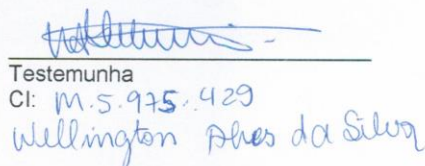 Testemunha
CI: M.5.975.429
Wellington Alves da Silva